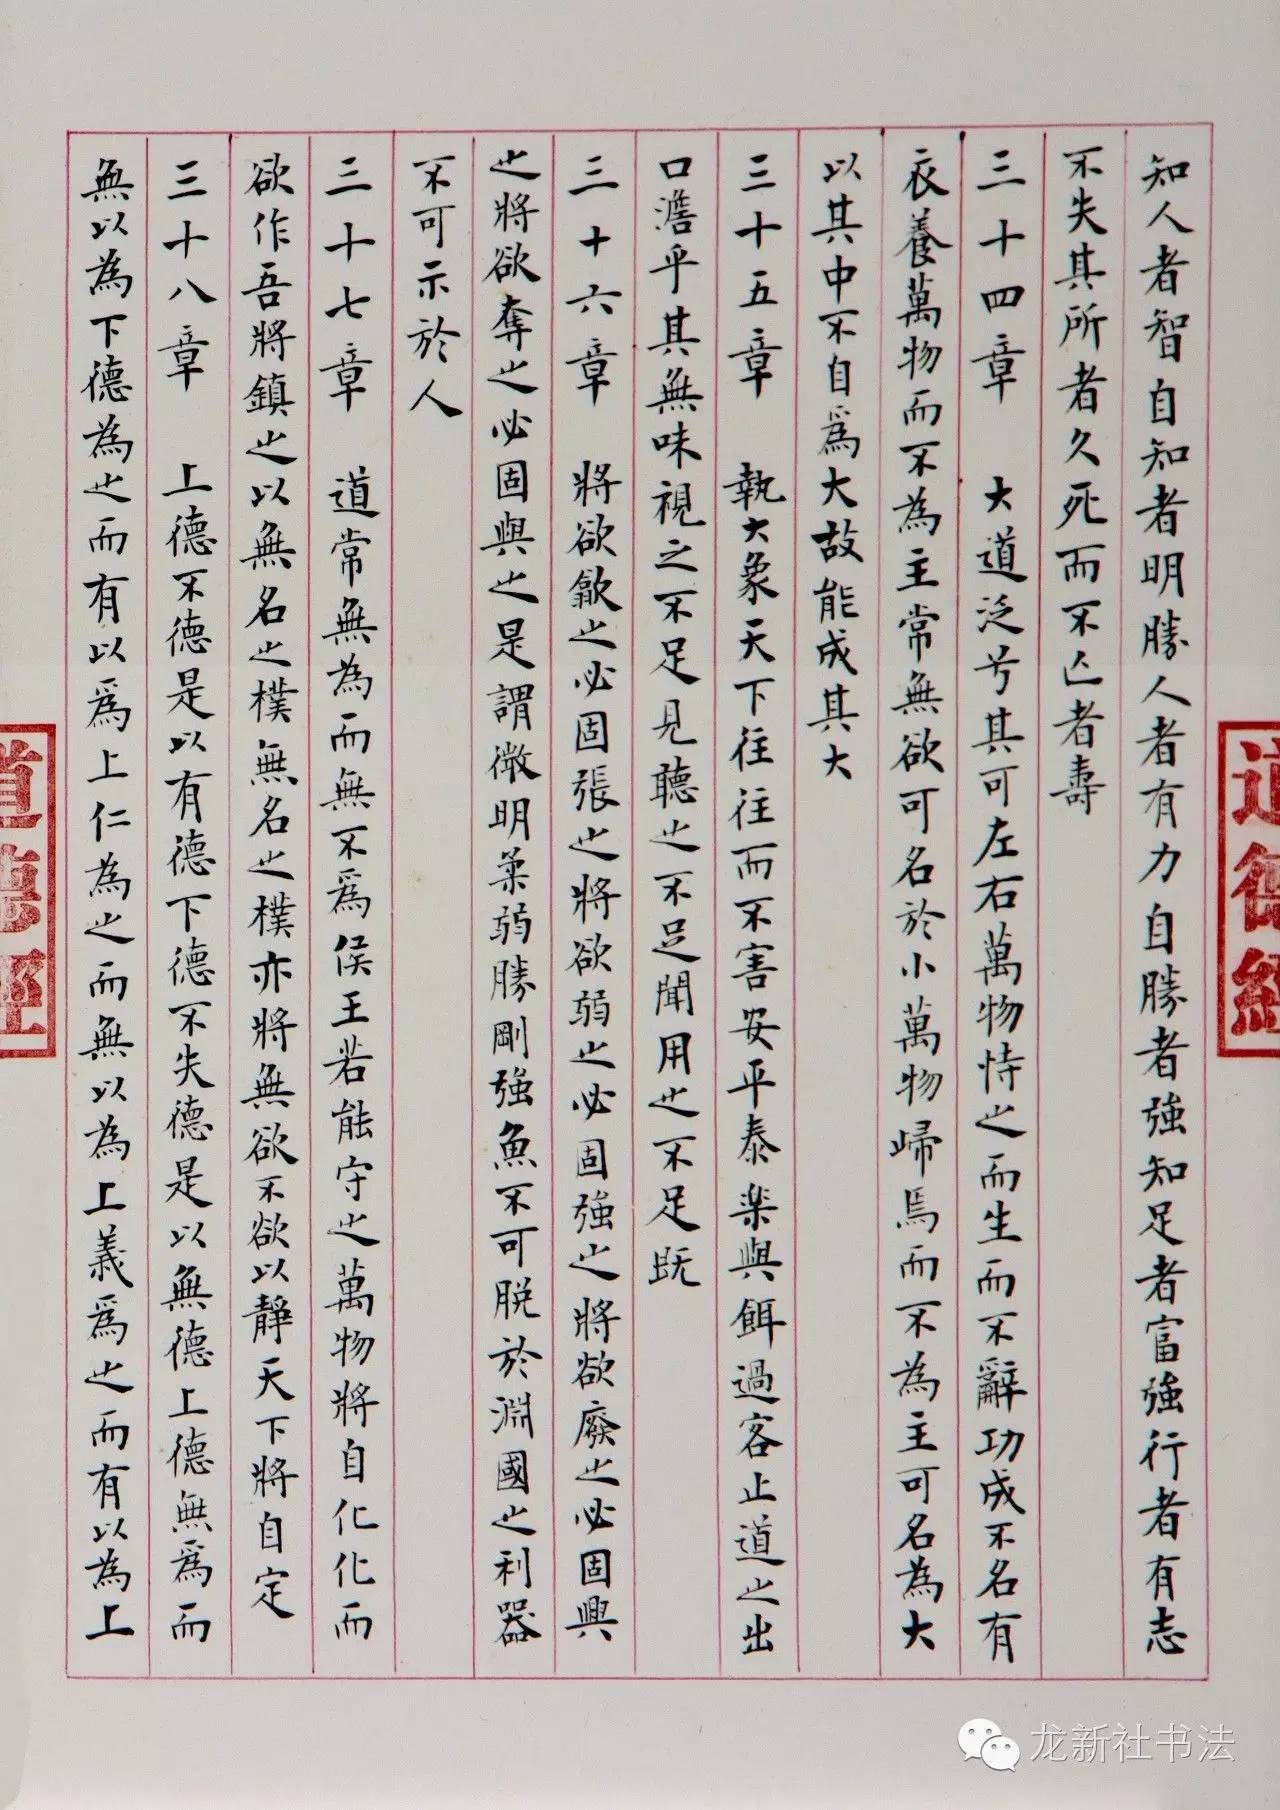 知人者智自知者明勝人者有力自勝者強知足者富強行者有志
不失其所者久死而不亡者壽
三十四章 大道泛兮其可左右萬物恃之而生而不辭功成不名有
衣養萬物而不為主常無欲可名於小萬物歸焉而不為主可名為大
以其中不自為大故能成其大
三十五章 執大象天下往往而不害安平泰樂與餌過客止道之出
口澹乎其無味視之不足見聽之不足聞用之不足既
三十六章 將欲歙之必固張之將欲弱之必固強之將欲廢之必固興
之將欲奪之必固與之是謂微明柔弱勝剛強魚不可脫於淵國之利器
不可示於人
三十七章 道常無為而無不為侯王若能守之萬物將自化化而
欲作吾將鎮之以無名之樸無名之樸亦將無欲不欲以靜天下將自定
三十八章 上德不德是以有德下德不失德是以無德上德無為而
無以為下德為之而有以為上仁為之而無以為上義為之而有以為上
道德經
道德經
龙新社书法